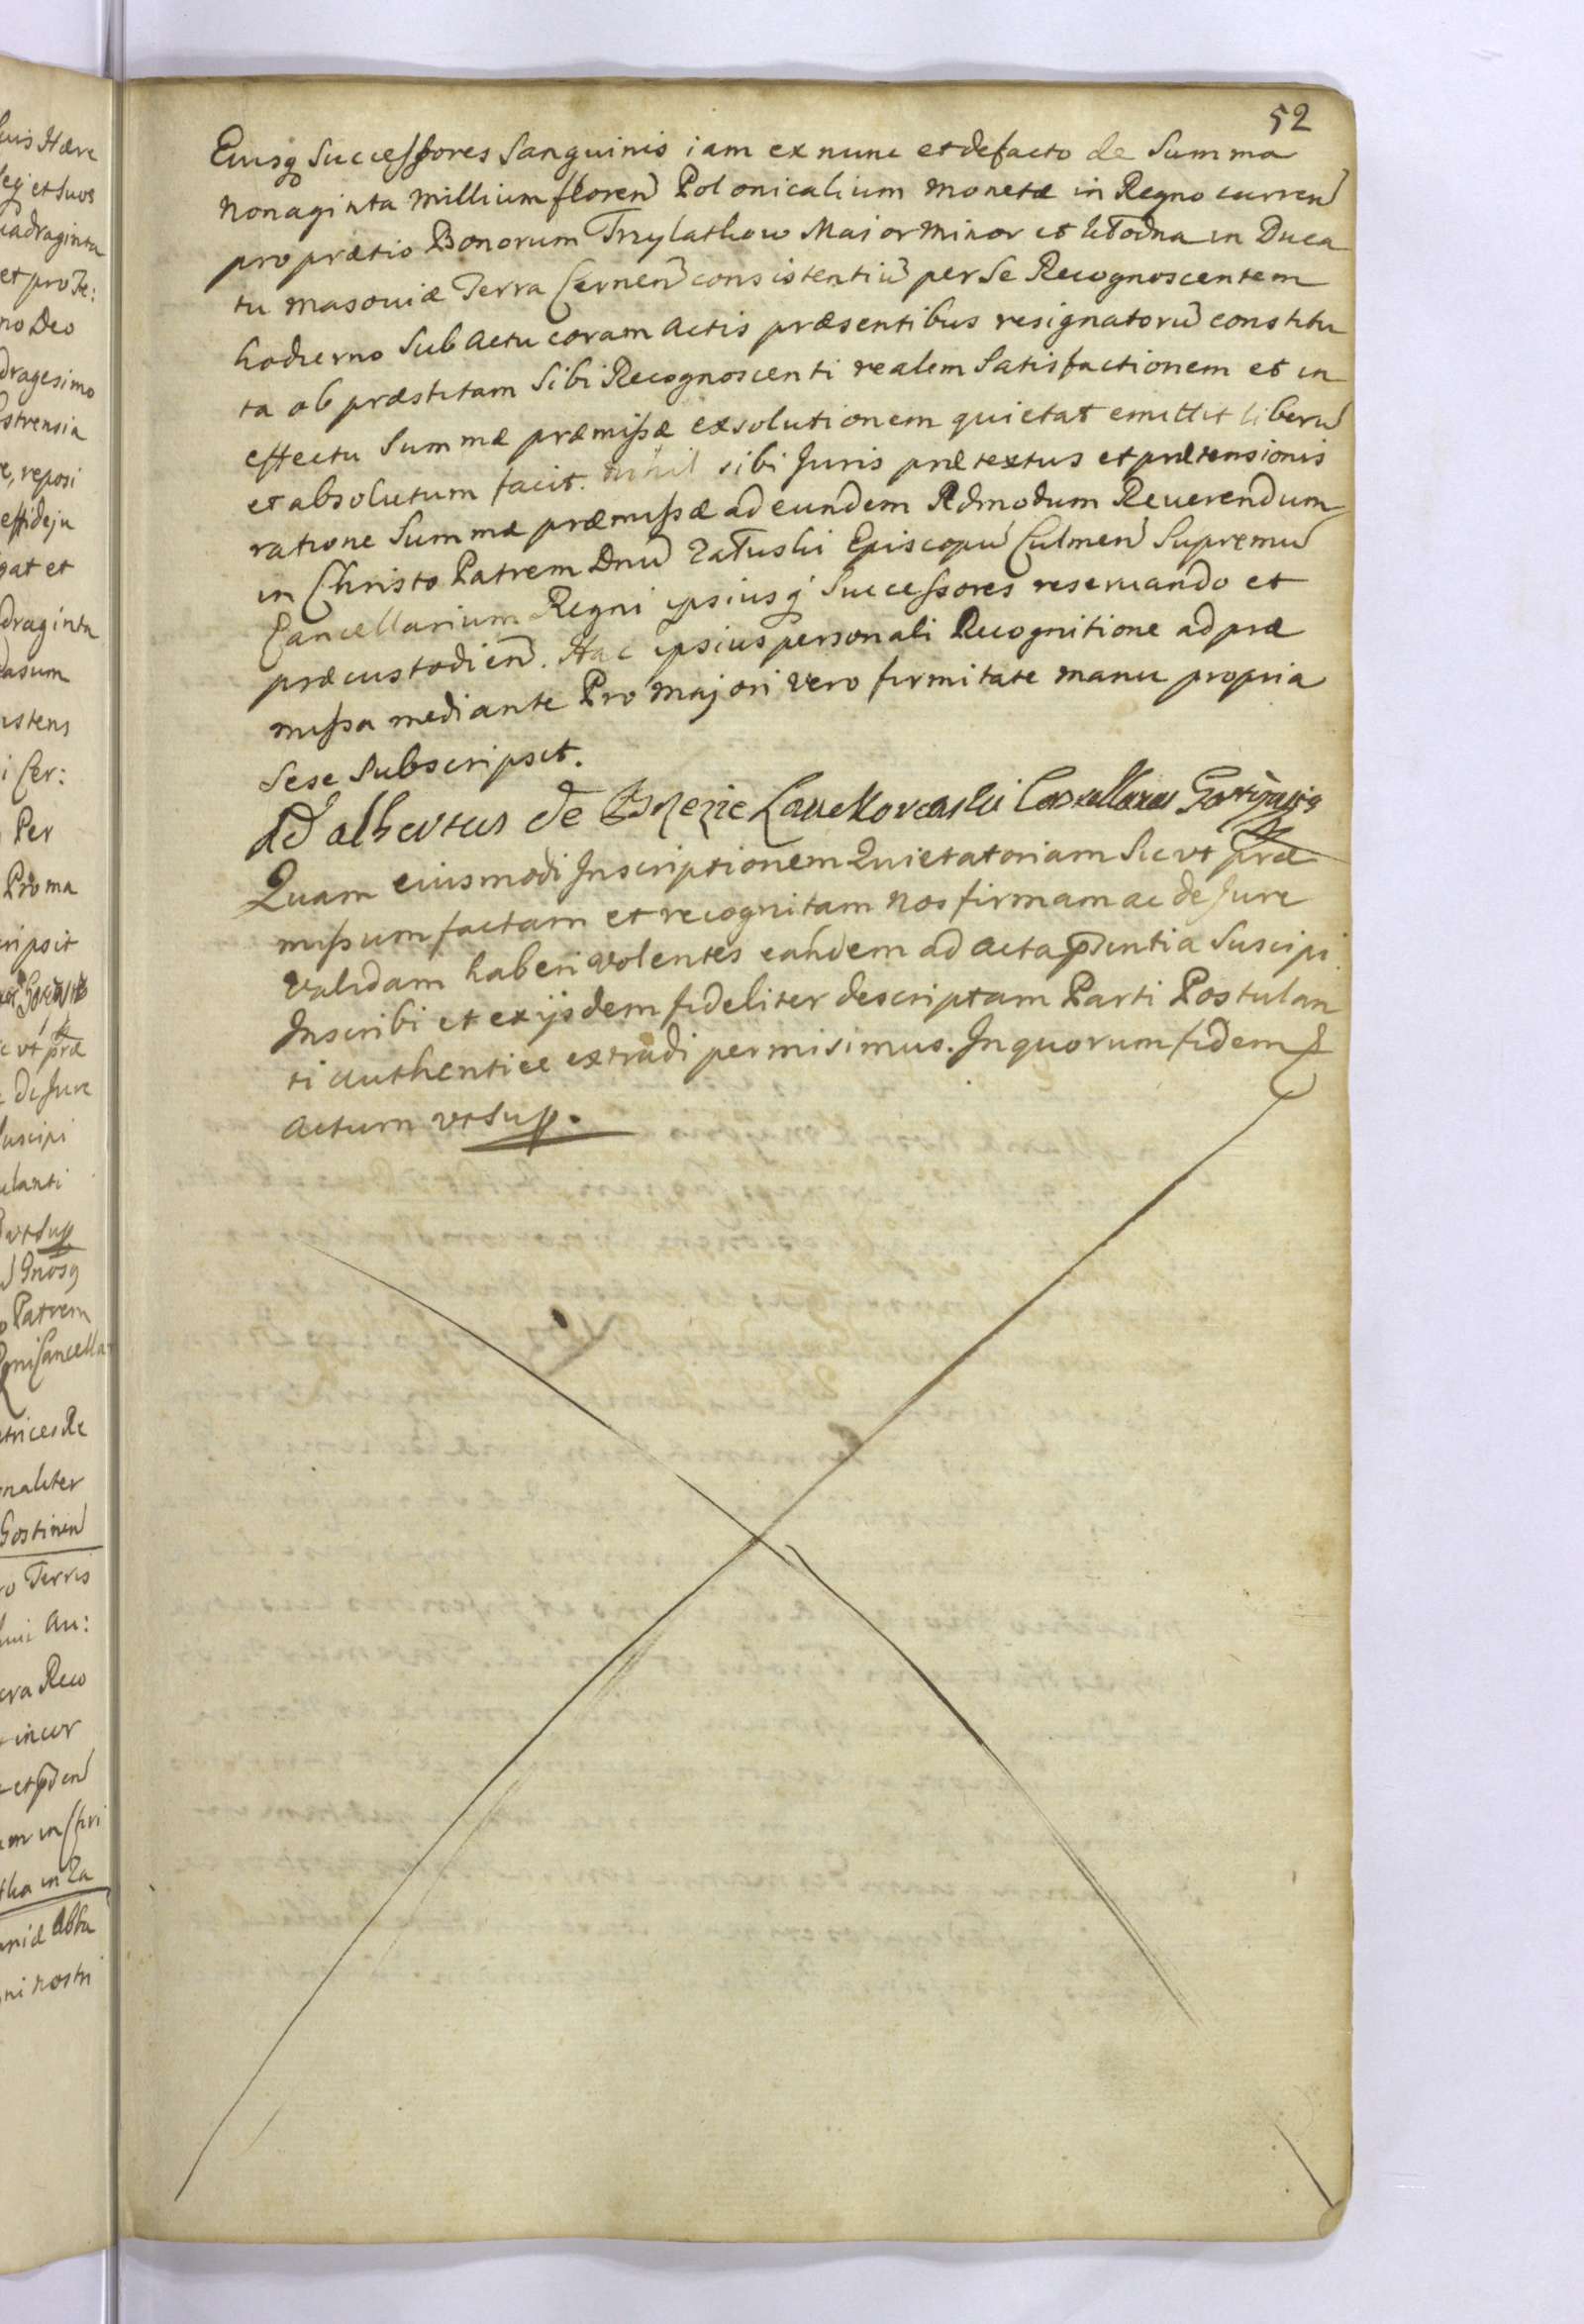 52
Eiusq Successores Sanguinis iam ex nunc et defacto de Summa
Nonaginta Millium floren Polonicalium Monetæ in Regno curren
pro prætio Bonorum Trzylathow Maior Minor et in Duca
tu Masoviæ Terra Cernen consistentiu per Se Recognoscentem
hodierno Sub Actu coram Actis præsentibus resignatoru constitu
ta ob præstitam Sibi Recognoscenti realem Satisfactionem et in
effectu Summæ præmissæ exsolutionem quietat emittit liberu
et absolutum facit. nihil sibi Juris prætextus et prætensionis
ratione Summæ præmissæ ad eundem Admodum Reuerendum
in Christo Patrem Dnu Załuski Episcopu Culmen Supremu
Cancellarium Regni ipsiusq Successores reseruando et
præcustodien. Hac ipsius personali Recognitione ad præ
missa mediante Pro Majori vero firmitate manu propria
Sese Subscripsit.
Adalbertus de Brzezie Lanckoronski
Quam eiusmodi Inscriptionem Quietatoriam Sicvt præ
missum factam et recognitam Nos firmam ac de Jure
Validam haberi volentes eandem ad Acta pñtia Suscipi
Inscribi et ex ijsdem fideliter descriptam Parti Postulan
ti authentice extradi permisimus. In quorum fidem &
Actum vt Supp.
suis Hære
leg et Suos
uadraginta
et pro Te:
no Deo
dragesimo
strensia
re, reposi
effideju
gat et
draginta
casum
istens
i Cer:
Per
Pro ma
cripsit
c vt præ
de Jure
Suscipi
ulanti
vt Supp
Patrem
gni Cancella
trices Re
naliter
Gostinen
ro Terris
hui Au:
cra Reco
incur
tha in Za
ni nostri